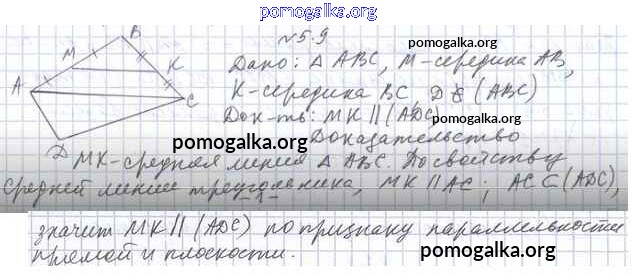 pomogalka.org
№5.9
pomogalka.org
B
M
K
A
C
D
Дано: Δ ABC, M-середина AB,
K-середина BC, D∉(ABC)
Док-ть: MK || (ADC)
pomogalka.org
Доказательство
MK-средняя линия Δ ABC. По свойству
pomogalka.org
средней линии треугольника, MK || AC; AC⊂(ADC),
значит MK || (ADC) по признаку параллельности
прямой и плоскости.
pomogalka.org